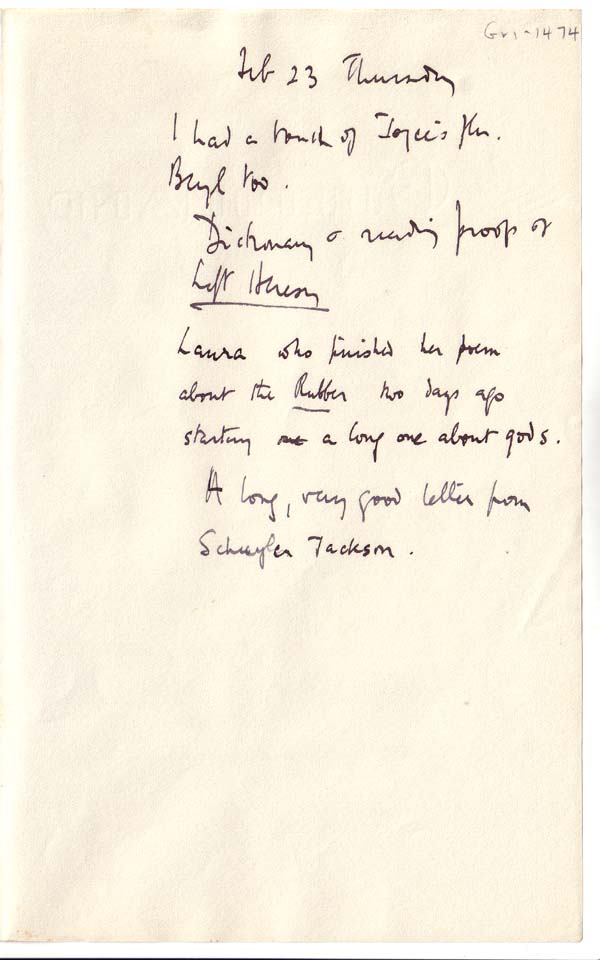 Gri-1474
Feb 23 Thursday
I had a touch of Joyce's flu.
Beryl too.
Dictionary & reading proofs of
Left Heresy
Laura who finished her poem
about the Rubber two days ago
starting a long one about gods.
A long, very good letter from
Schuyler Jackson.